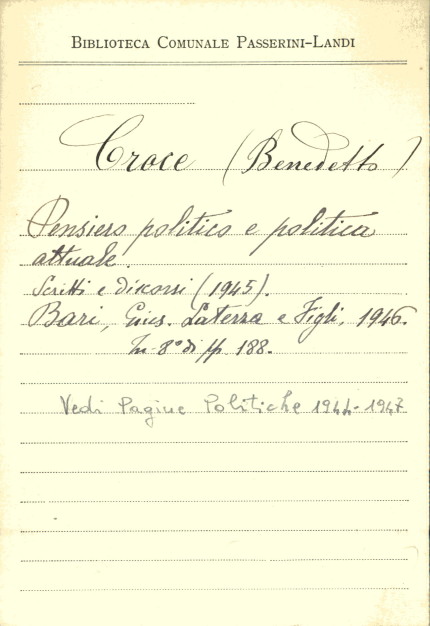 BIBLIOTECA COMUNALE PASSERINI-LANDI
Croce (Benedetto)
Pensiero politico e politica
attuale.
Scritti e discorsi (1945).
Bari, Gius. Laterza e Figli, 1946.
In-8° di pp. 188.
Vedi Pagine Politiche 1944-1947